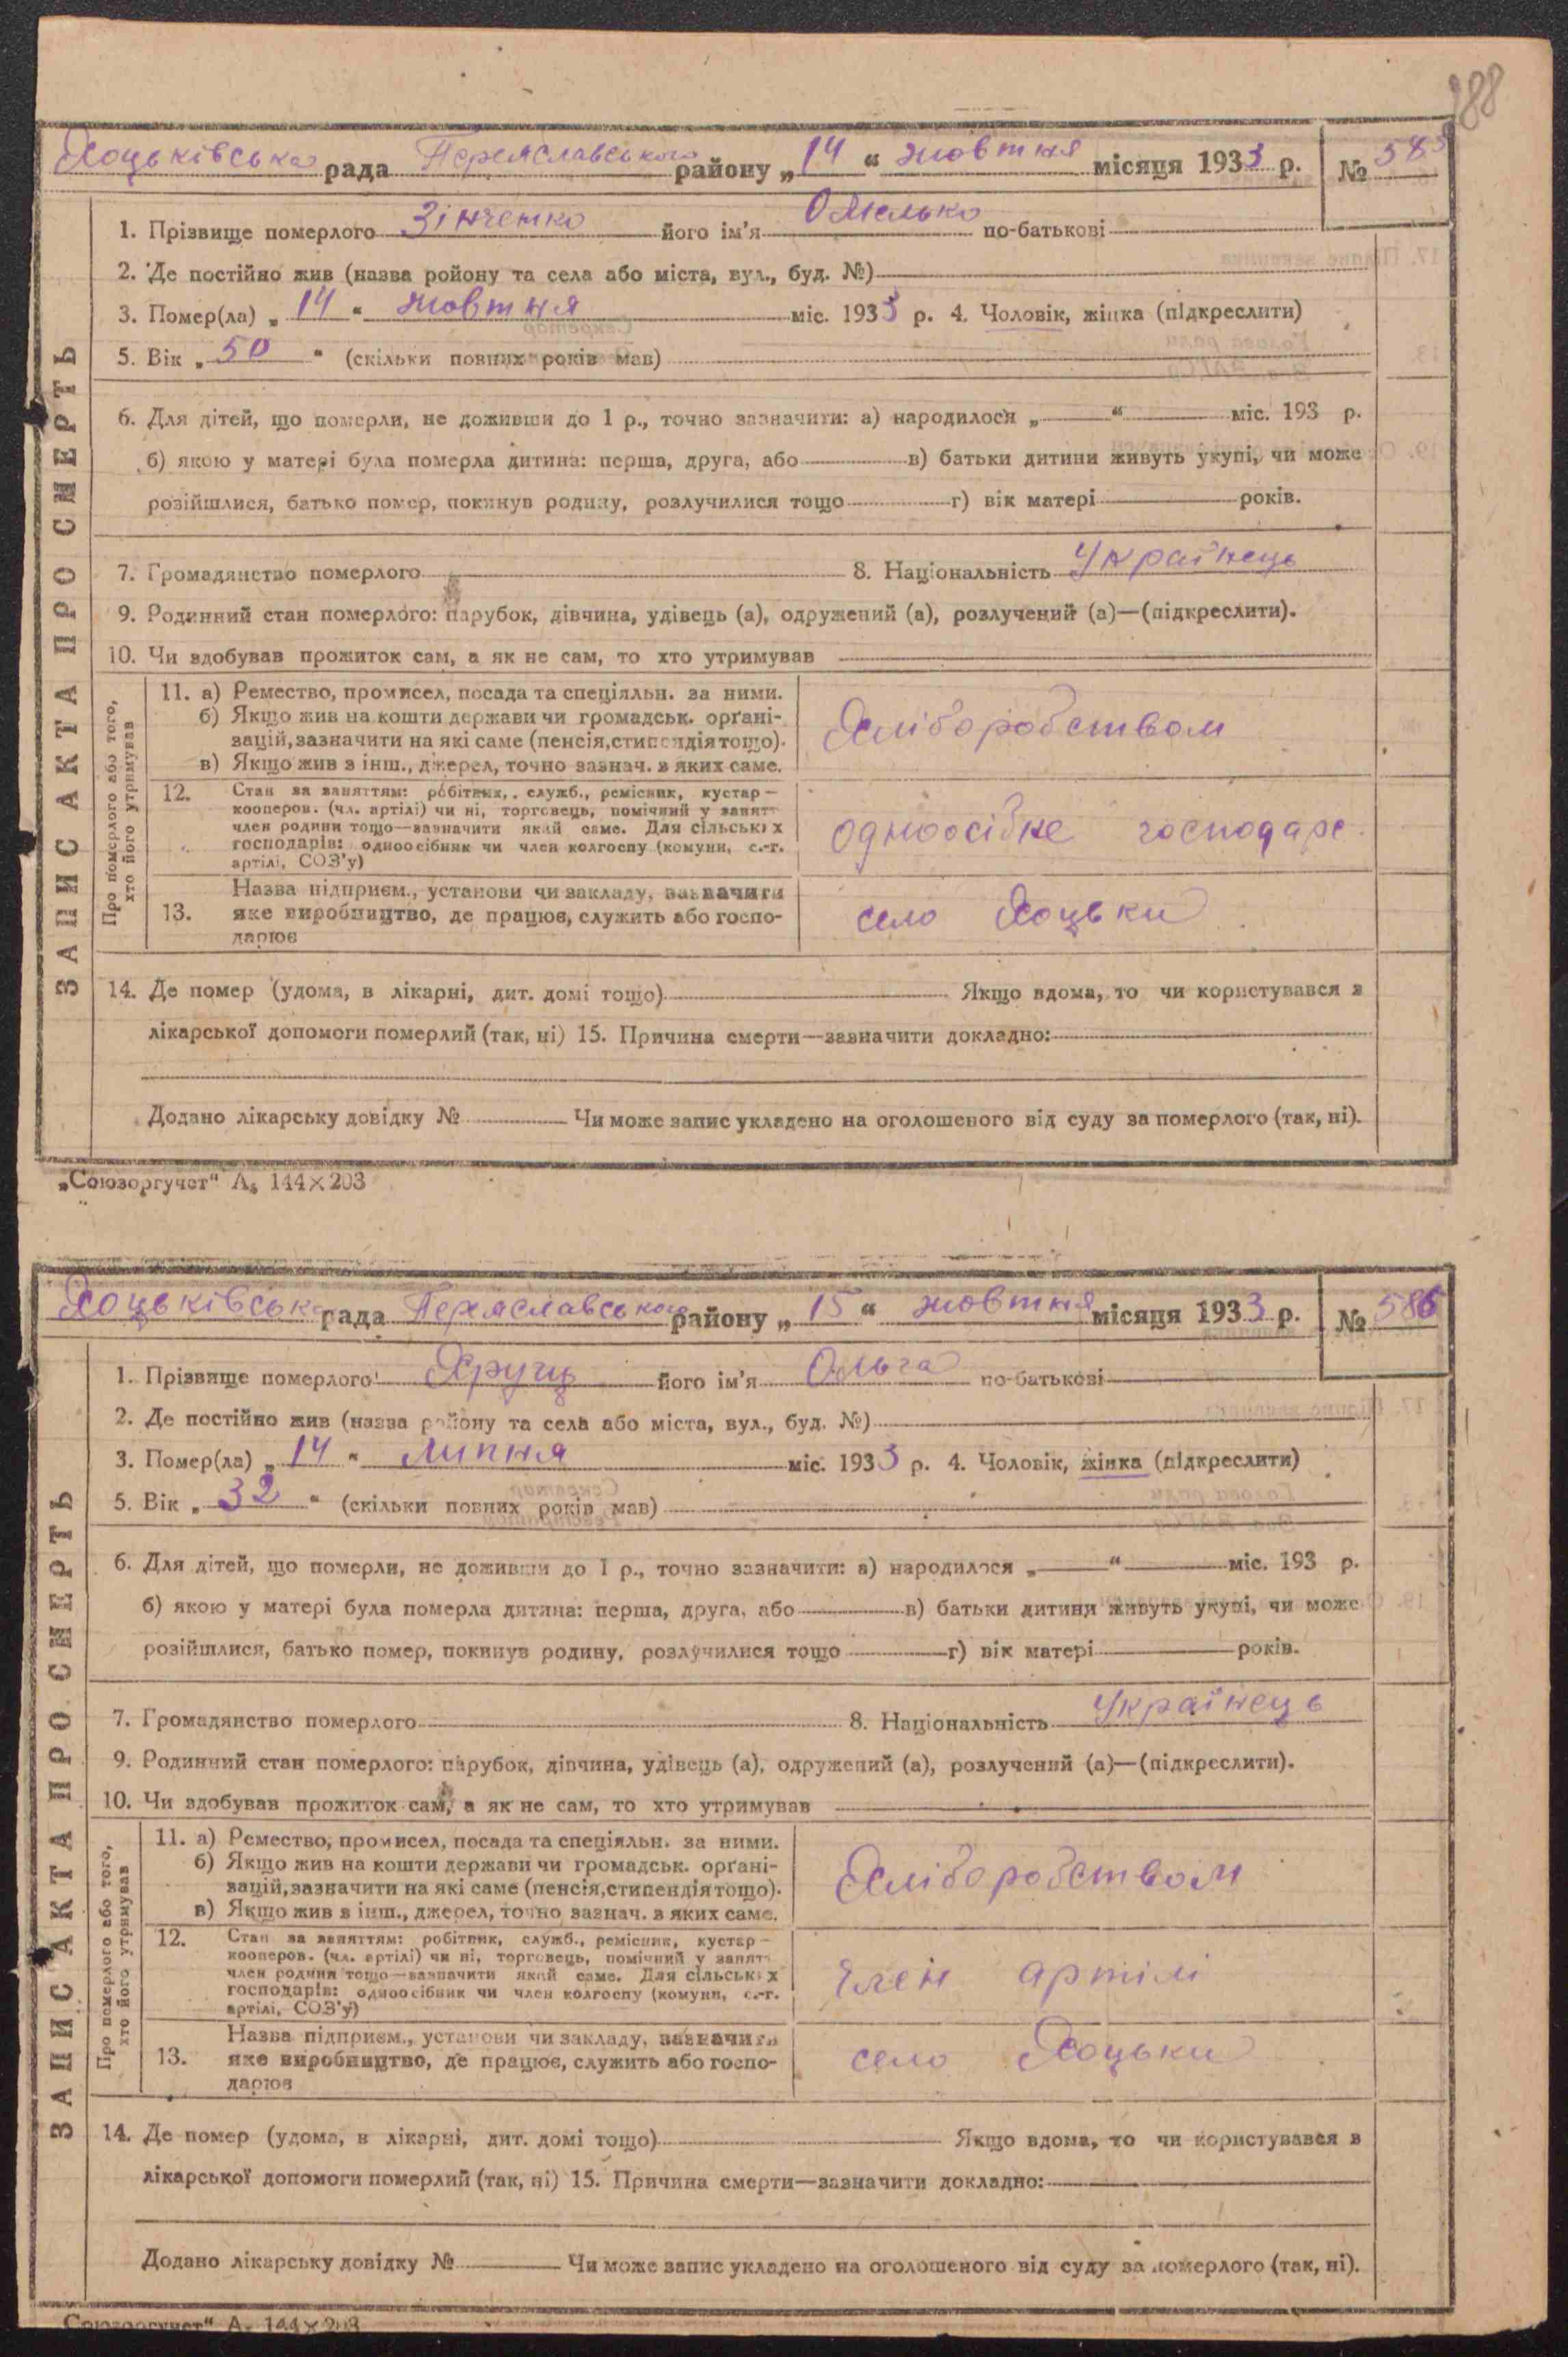 188
Хоцьківська рада Переяславського району „14“ жовтня місяця 1933 р. № 585
ЗАПИС АКТА ПРО СМЕРТЬ
1. Прізвище померлого Зінченко його ім'я Омелько по-батькові
2. Де постійно жив (назва ройону та села або міста, вул., буд. №)
3. Помер(ла) „14“ жовтня міс. 1933 р. 4. Чоловік, жінка (підкреслити)
5. Вік „50“ (скільки повних років мав)
6. Для дітей, що померли, не доживши до 1 р., точно зазначити: а) народилося „ “ міс. 193 р.
б) якою у матері була померла дитина: перша, друга, або в) батьки дитини живуть укупі, чи може
розійшлися, батько помер, покинув родину, розлучилися тощо г) вік матері років.
7. Громадянство померлого 8. Національність Українець
9. Родинний стан померлого: парубок, дівчина, удівець (а), одружений (а), розлучений (а)—(підкреслити).
10. Чи здобував прожиток сам, а як не сам, то хто утримував
Про померлого або того, хто його утримував
11. а) Ремество, промисел, посада та спеціяльн. за ними.
б) Якщо жив на кошти держави чи громадськ. орґані-
зацій, зазначити на які саме (пенсія, стипендія тощо).
в) Якщо жив з інш., джерел, точно зазнач. з яких саме.
Хліборобством
12. Стан за заняттям: робітник, служб., ремісник, кустар—
кооперов. (чл. артілі) чи ні, торговець, помічний у занятт
член родини тощо—зазначити який саме. Для сільських
господарів: одноосібник чи член колгоспу (комуни, с.-г.
артілі, СОЗ'у)
одноосібне господарс
13. Назва підприєм., установи чи закладу, зазначити
яке виробництво, де працює, служить або госпо-
дарює
село Хоцьки
14. Де помер (удома, в лікарні, дит. домі тощо) Якщо вдома, то чи користувався з
лікарської допомоги померлий (так, ні) 15. Причина смерти—зазначити докладно:
Додано лікарську довідку № Чи може запис укладено на оголошеного від суду за померлого (так, ні).
„Союзоргучет“ А₅ 144×203
Хоцьківська рада Переяславського району „15“ жовтня місяця 1933 р. № 586
ЗАПИС АКТА ПРО СМЕРТЬ
1. Прізвище померлого його ім'я Ольга по-батькові
2. Де постійно жив (назва району та села або міста, вул., буд. №)
3. Помер(ла) „14“ липня міс. 1933 р. 4. Чоловік, жінка (підкреслити)
5. Вік „32“ (скільки повних років мав)
6. Для дітей, що померли, не доживши до 1 р., точно зазначити: а) народилося „ “ міс. 193 р.
б) якою у матері була померла дитина: перша, друга, або в) батьки дитини живуть укупі, чи може
розійшлися, батько помер, покинув родину, розлучилися тощо г) вік матері років.
7. Громадянство померлого 8. Національність Українець
9. Родинний стан померлого: парубок, дівчина, удівець (а), одружений (а), розлучений (а)—(підкреслити).
10. Чи здобував прожиток сам, а як не сам, то хто утримував
Про померлого або того, хто його утримував
11. а) Ремество, промисел, посада та спеціяльн. за ними.
б) Якщо жив на кошти держави чи громадськ. орґані-
зацій, зазначити на які саме (пенсія, стипендія тощо).
в) Якщо жив з інш., джерел, точно зазнач. з яких саме.
Хліборобством
12. Стан за заняттям: робітник, служб., ремісник, кустар—
кооперов. (чл. артілі) чи ні, торговець, помічний у занятт
член родини тощо—зазначити який саме. Для сільських
господарів: одноосібник чи член колгоспу (комуни, с.-г.
артілі, СОЗ'у)
член артілі
13. Назва підприєм., установи чи закладу, зазначити
яке виробництво, де працює, служить або госпо-
дарює
село Хоцьки
14. Де помер (удома, в лікарні, дит. домі тощо) Якщо вдома, то чи користувався з
лікарської допомоги померлий (так, ні) 15. Причина смерти—зазначити докладно:
Додано лікарську довідку № Чи може запис укладено на оголошеного від суду за померлого (так, ні).
„Союзоргучет“ А₅ 144×203